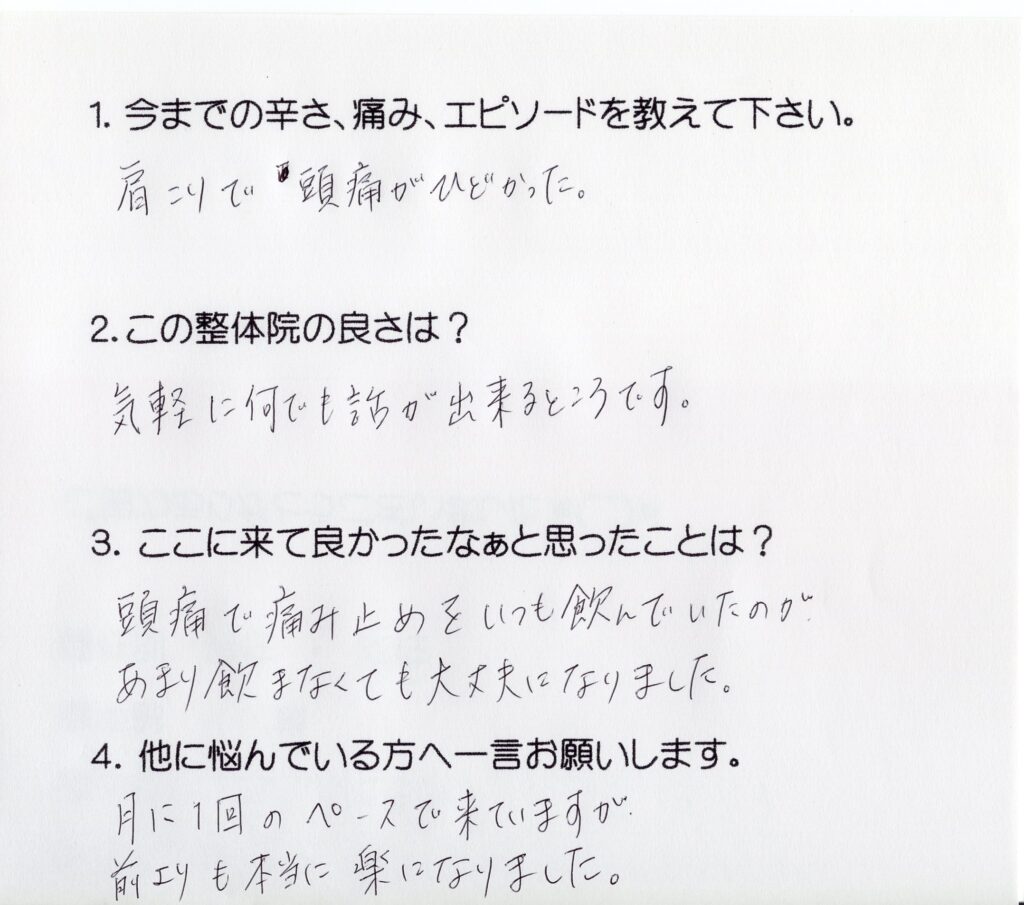 1. 今までの辛さ、痛み、エピソードを教えて下さい。
肩こりで 頭痛がひどかった。
2.この整体院の良さは？
気軽に何でも話が出来るところです。
3. ここに来て良かったなぁと思ったことは？
頭痛で痛み止めをいつも飲んでいたのが
あまり飲まなくても大丈夫になりました。
4. 他に悩んでいる方へ一言お願いします。
月に1回のペースで来ていますが
前よりも本当に楽になりました。